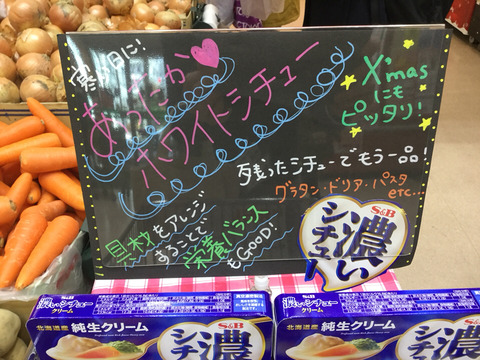 寒い日に!
あったか
ホワイトシチュー
X'mas
にも
ピッタリ!
残ったシチューでもう一品!
グラタン・ドリア・パスタ
etc...
具材をアレンジ
することで
栄養バランス
もGOOD!
S&B
濃い
シチュー
濃いシチュー
クリーム
北海道産 純生クリーム
S&B
濃
シチ
S&B
濃いシチュー
クリーム
北海道産 純生クリーム
S&B
濃
シチ